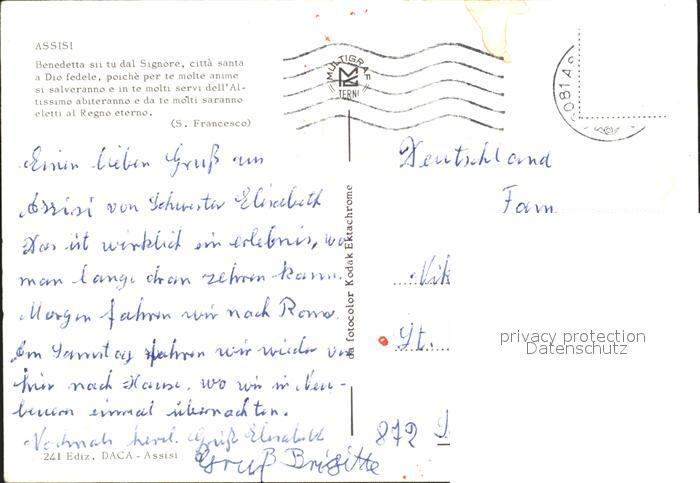 ASSISI
Benedetta sii tu dal Signore, città santa
a Dio fedele, poichè per te molte anime
si salveranno e in te molti servi dell'Al-
tissimo abiteranno e da te molti saranno
eletti al Regno eterno.
(S. Francesco)
MULTIGRAF
TERNI
Einen lieben Gruß aus
Assisi von Schwester Elisabeth
Das ist wirklich ein erlebnis, wo
man lange dran zehren kann.
Morgen fahren wir nach Roma.
Am Samstag fahren wir wieder von
hier nach Hause, wo wir in
einmal übernachten.
Nochmals herzl. Grüße Elisabeth
Gruß Brigitte
241 Ediz. DACA - Assisi
da fotocolor Kodak Ektachrome
Deutschland
Fam
Vik
St.
872
privacy protection
Datenschutz